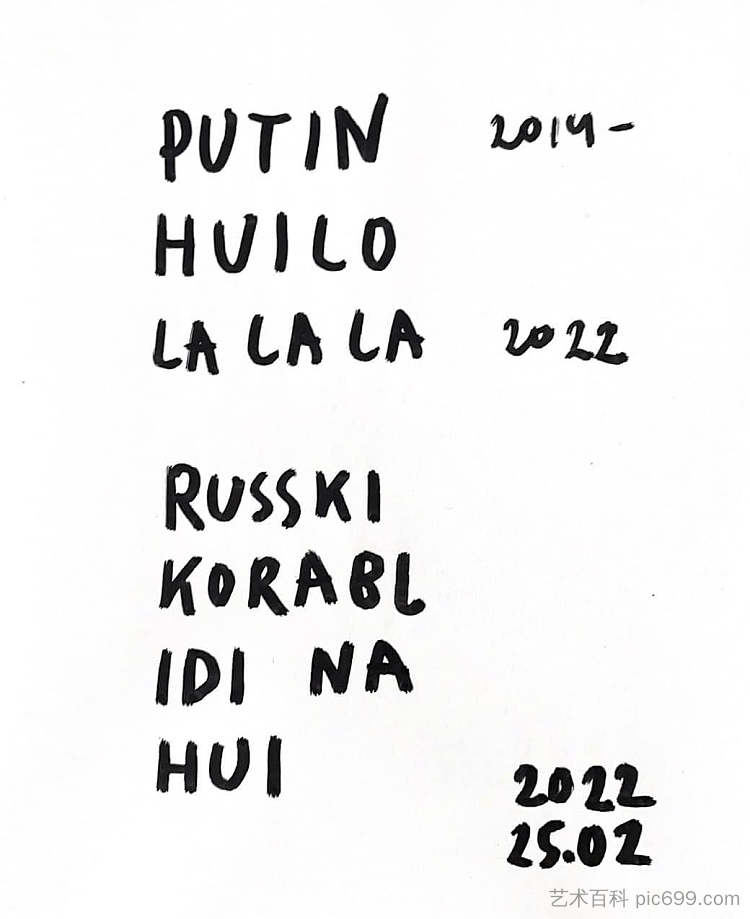 PUTIN 2014-
HUILO
LA LA LA 2022
RUSSKI
KORABL
IDI NA
HUI
2022
25.02
艺术百科 pic699.com